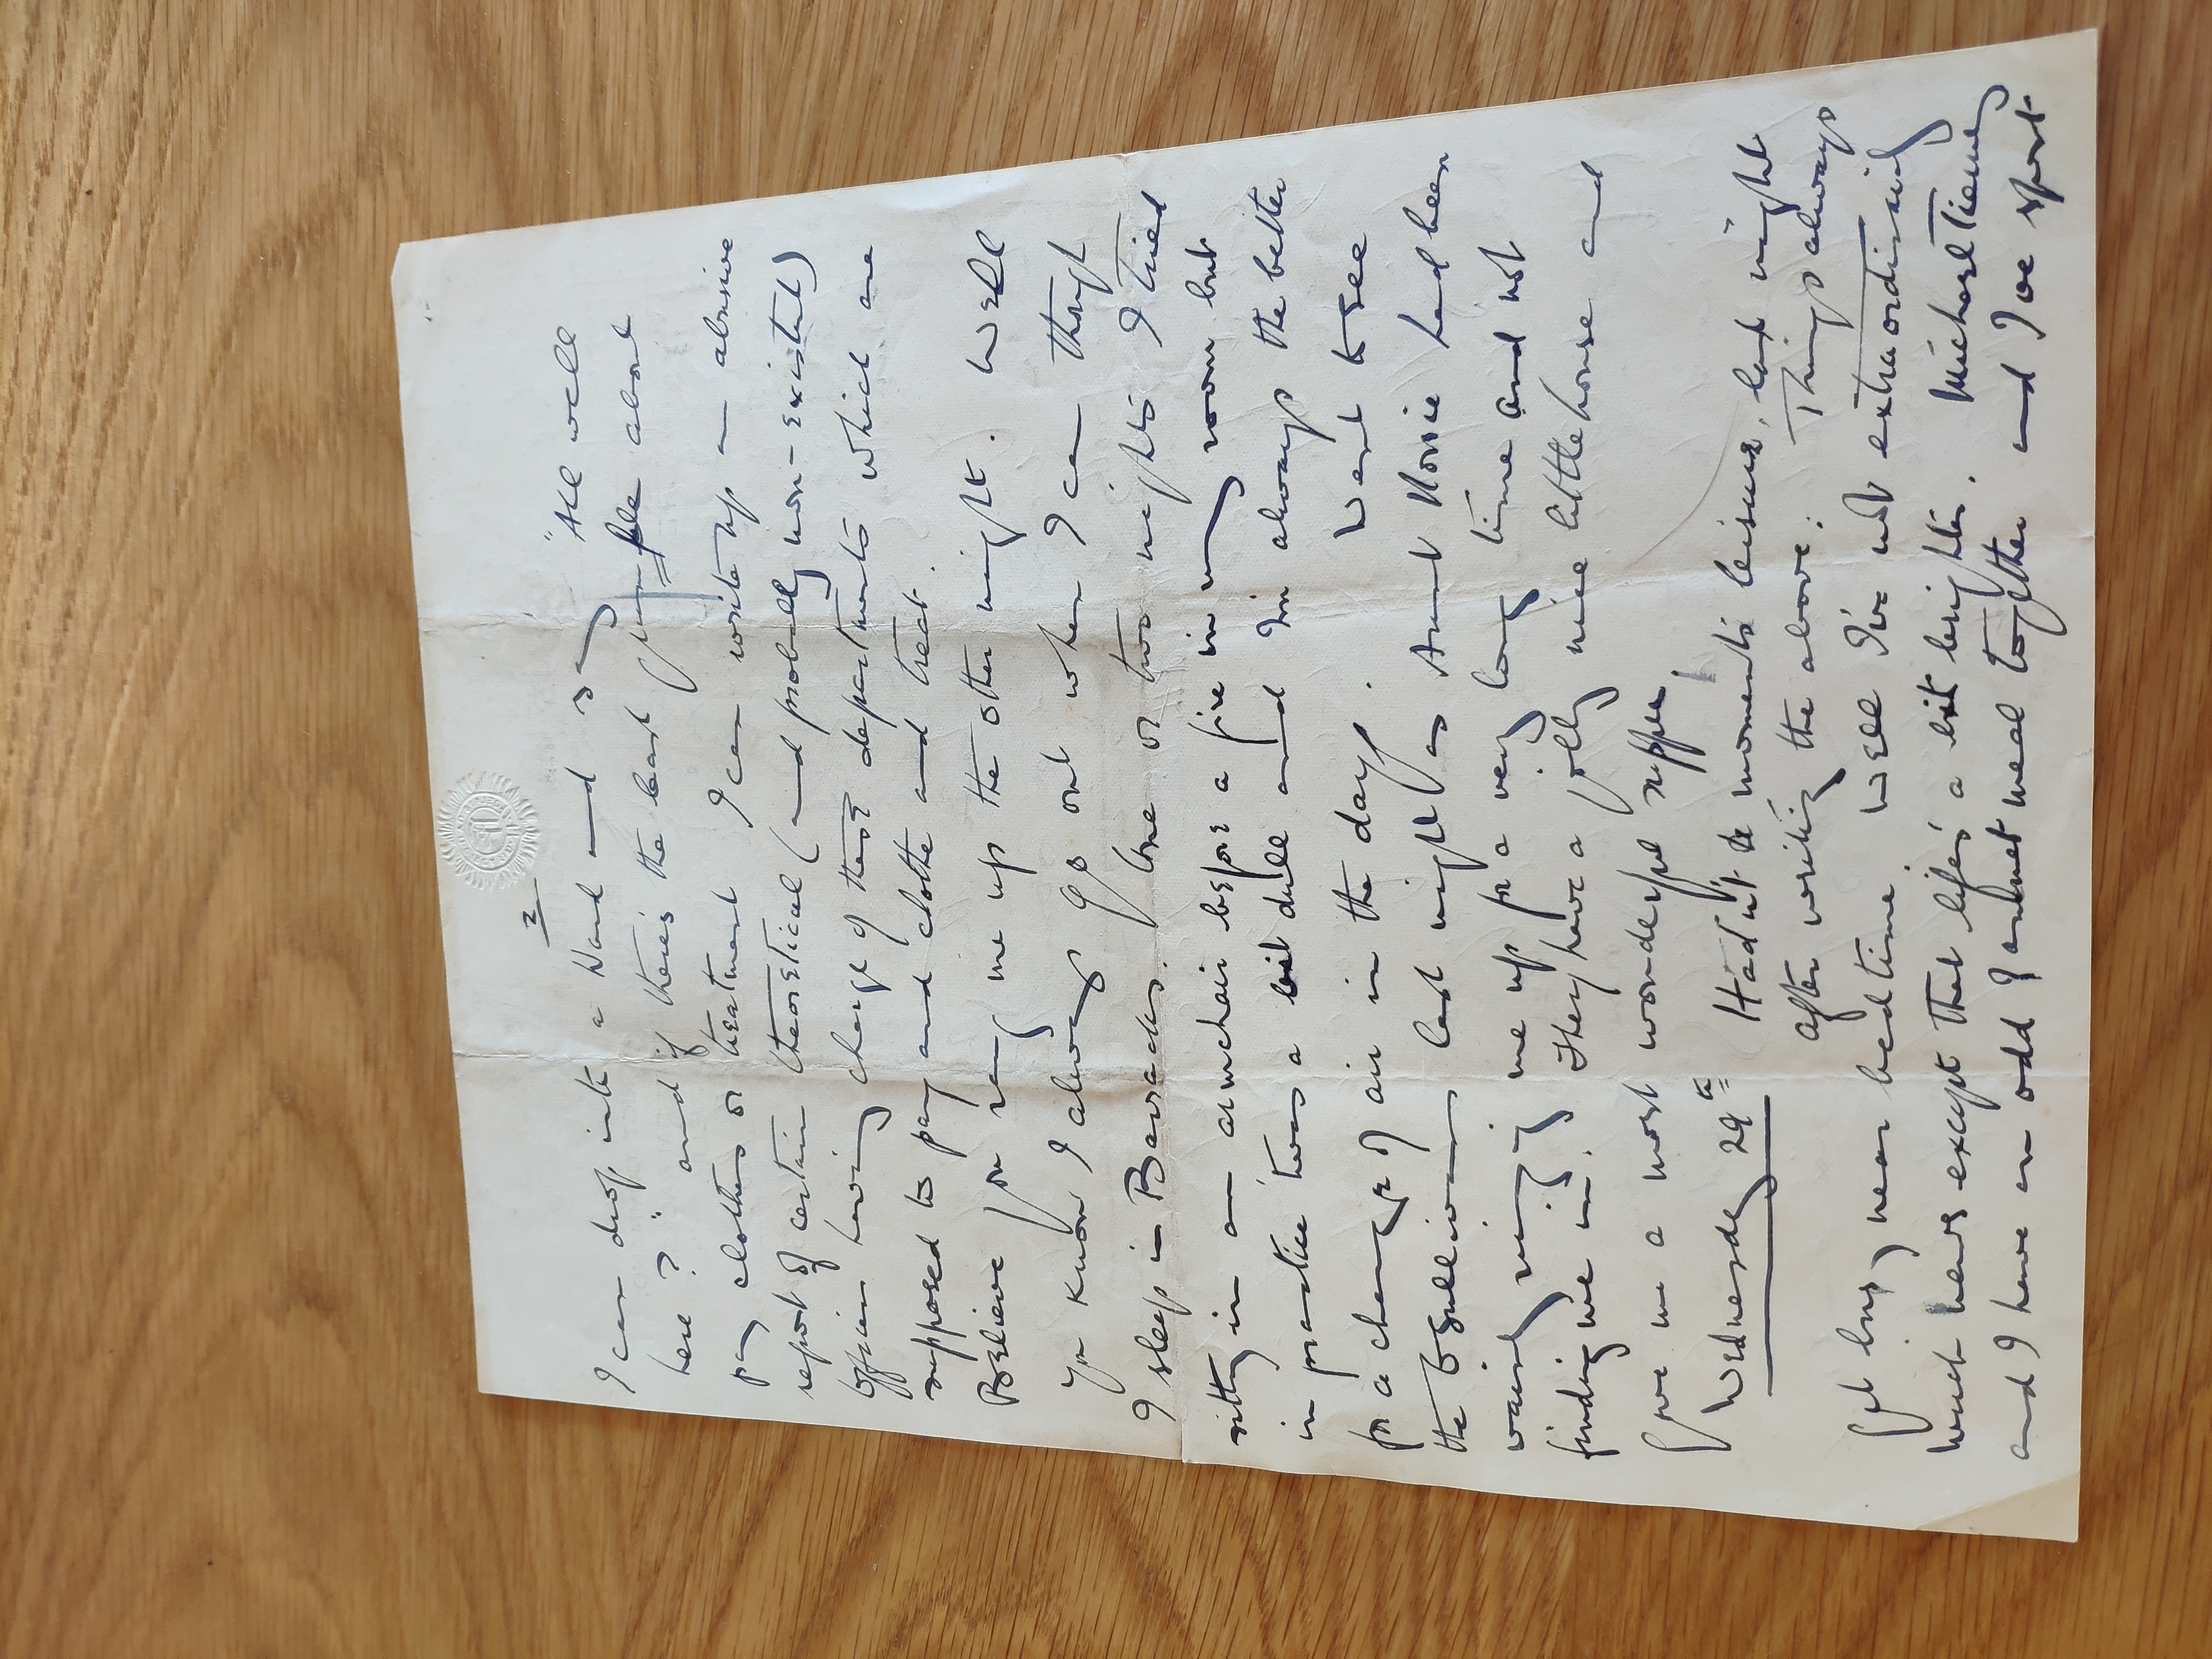 2
I can drop into a Ward and say "All well
here?" and if there's the least grumble about
pay clothes or treatment I can write up an abusive
report of certain theoretical (and probably non-existent)
officers having charge of these departments which are
supposed to pay and clothe and treat.
Believe you rang me up the other night. Well
you know I always go out when I can though
I sleep in Barracks. One or two nights I tried
sitting in an armchair before a fire in my room but
in practice twas a bit dull and I'm always the better
for a change of air in the day. Went to see
the O'Sullivans last night as Aunt Rosie had been
vainly ringing me up for a very long time and not
finding me in. They have a jolly nice little house and
gave me a most wonderful supper.
Wednesday 29th Hadn't a moment's leisure, last night
after writing the above: Things always
get busy near bedtime. Well I've not extraordinary
much news except that life's a bit brighter. Michael Tierney
and I have an odd gourmet meal together and I've spent